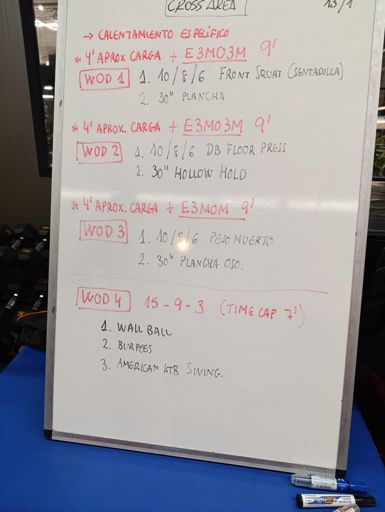 CROSS AREA 13/1
→ CALENTAMIENTO ESPECÍFICO
* 4' APROX CARGA + E3MO3M 9'
WOD 1 1. 10/8/6 FRONT SQUAT (SENTADILLA)
2. 30" PLANCHA
* 4' APROX. CARGA + E3MO3M 9'
WOD 2 1. 10/8/6 DB FLOOR PRESS
2. 30" HOLLOW HOLD
* 4' APROX. CARGA + E3MOM 9'
WOD 3 1. 10/8/6 PESO MUERTO
2. 30" PLANCHA OSO.
WOD 4 15-9-3 (TIME CAP 7')
1. WALL BALL
2. BURPEES
3. AMERICAN KTB SWING.